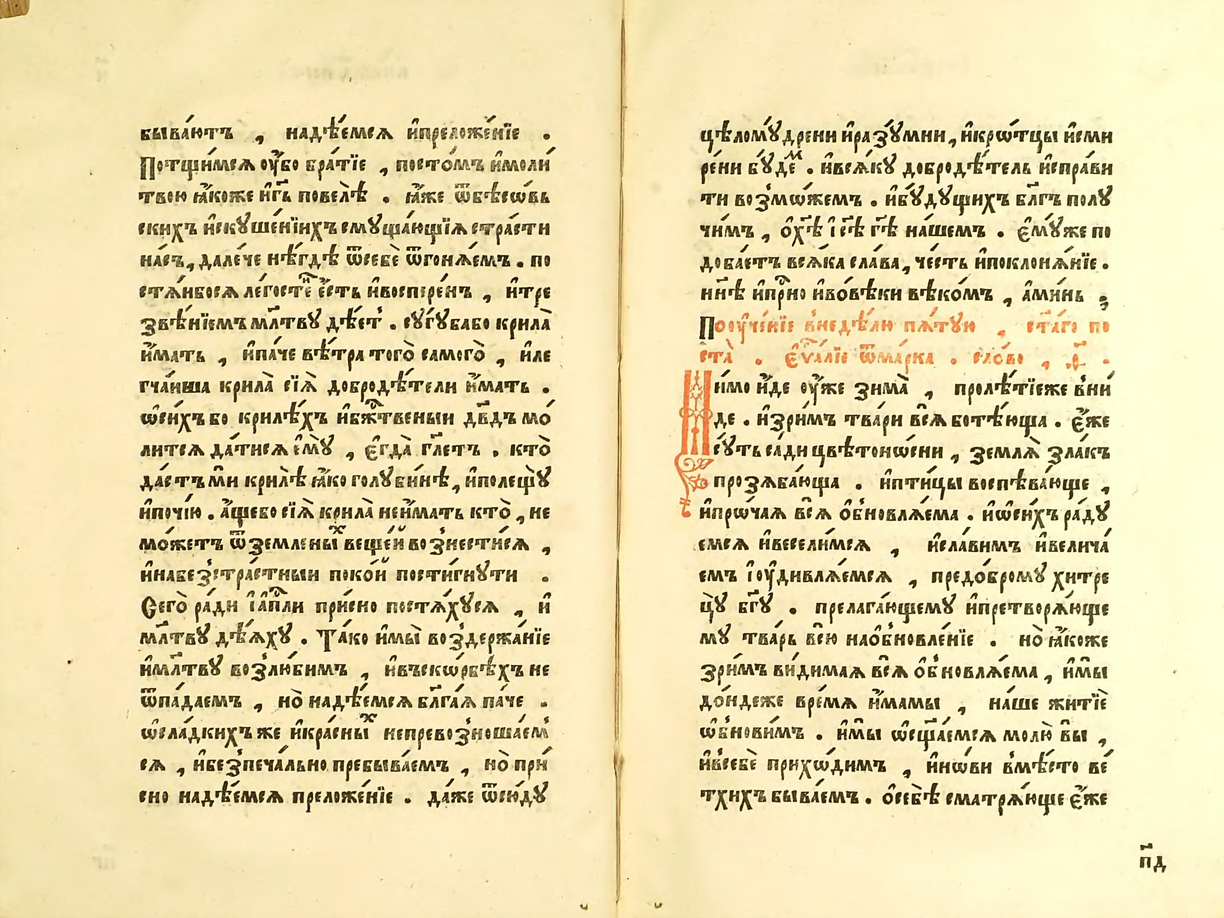 бываю́тъ , надѣ́емсѧ и҆преложе́нїе .
Потщи́мсѧ ᲂу҆̀бо бра́тїе , посто́мъ и҆моли́
твою ꙗ҆́коже и҆гь҃ повелѣ̀ . ꙗ҆́же ѿбѣсѡ́вь
скихъ и҆скꙋше́нїихъ смꙋща́ющїѧ стра́сти
на́съ, дале́че нѣ́гдѣ ѿсебѐ ѿгонѧ́емъ . по
стѧ́йбосѧ легостїе є҆́сть и҆восперє́нъ , и҆тре
звѣ́нїемъ мл҃твꙋ дѣ́ет . сꙋгꙋбабо крила̀
и҆́мать , и҆па́че вѣ́тра того̀ самого̀ , и҆ле
гча́йша крила̀ сїѧ̑ добродѣ́тели и҆́мать .
ѡ҆си́хъ бо крилѣ́хъ и҆бж҃твеный дв҃дъ мо́
литсѧ да́тисѧ є҆мꙋ̀ , є҆гда̀ гл҃етъ . кто̀
да́стъ мѝ крилѣ̀ ꙗ҆́ко голꙋби́нѣ, и҆полещꙋ̀
и҆почі́ю . а҆́щебо сїѧ̑ крила̀ неи҆́мать кто̀ , не
мо́жетъ ѿ земленыⷯ веще́й вознести́сѧ ,
и҆набезстра́стный поко́й пости́гнꙋти .
Сего̀ ра́ди і҆а҆пⷭ҇ли при́сно постѧ́хꙋсѧ , и҆
мл҃твꙋ дѣ́ѧхꙋ . Та́ко и҆мы̀ воздержа́нїе
и҆мл҃твꙋ возлю́бимъ , и҆въско́рбѣхъ не
ѿпа́даемъ , но̀ надѣ́емсѧ бл҃га́ѧ па́че .
ѡ҆сла́дкихъ же и҆красныⷯ непревозноша́ем
сѧ , и҆безпеча́льно пребыва́емъ , но̀ при́
сно надѣ́емсѧ преложе́нїе . да́же ѿсю́дꙋ
цѣломꙋ́дрени и҆разꙋ́мни, и҆кро́тцы и҆сми
ре́ни бꙋ́деⷨ . и҆всѧ́кꙋ добродѣ́тель и҆спра́ви
ти возмо́жемъ . и҆бꙋ́дꙋщихъ бл҃гъ полꙋ
чи́мъ , ѻ҆хⷭ҇ѣ і҆и҃сѣ гдⷭ҇ѣ на́шемъ . є҆мꙋ́же по
доба́етъ всѧ́ка сла́ва, че́сть и҆поклонѧ́нїе .
нн҃ѣ и҆прⷭ҇но и҆вовѣ́ки вѣко́мъ , а҆ми́нь ;
Поᲂуче́нїе внедѣ́лю пѧ́тꙋю , ст҃а́гѡ по
ста̀ . є҆ѵⷢ҇а́лїе ѿма́рка . сло́во ,
Ми́мо и҆́де ᲂу҆́же зима̀ , проле́тїеже вни́
де . и҆зри́мъ тва́ри всѧ̑ ботѣ́юща . є҆́же
сꙋ́ть сади́ цвѣтоно́сни , землѧ̀ зла́къ
прозѧба́юща . и҆пти́цы воспѣва́юще ,
и҆про́чаѧ всѧ̑ ѻ҆бновлѧ́ема . и҆ѡ҆си́хъ ра́дꙋ
емсѧ и҆весели́мсѧ , и҆сла́вимъ и҆велича́
емъ і҆ᲂу҆дивлѧ́емсѧ , предо́бромꙋ хитре
цꙋ̀ бг҃ꙋ . прелага́ющемꙋ и҆претворѧ́юще
мꙋ тва́рь всю̀ наѻ҆бновле́нїе . но̀ ꙗ҆́коже
зри́мъ ви́димаѧ всѧ̑ ѻ҆бновлѧ́ема , и҆мы̀
до́ндеже вре́мѧ и҆́мамы , на́ше житїѐ
ѡ҆бнови́мъ . и҆мы̀ ѡ҆сщ҃а́емсѧ молю̀ вы̀ ,
и҆всебѐ прихо́димъ , и҆но́ви вмѣ́сто ве́
тхихъ быва́емъ . ѻ҆себѣ̀ сматрѧ́юще є҆́же
п҃д